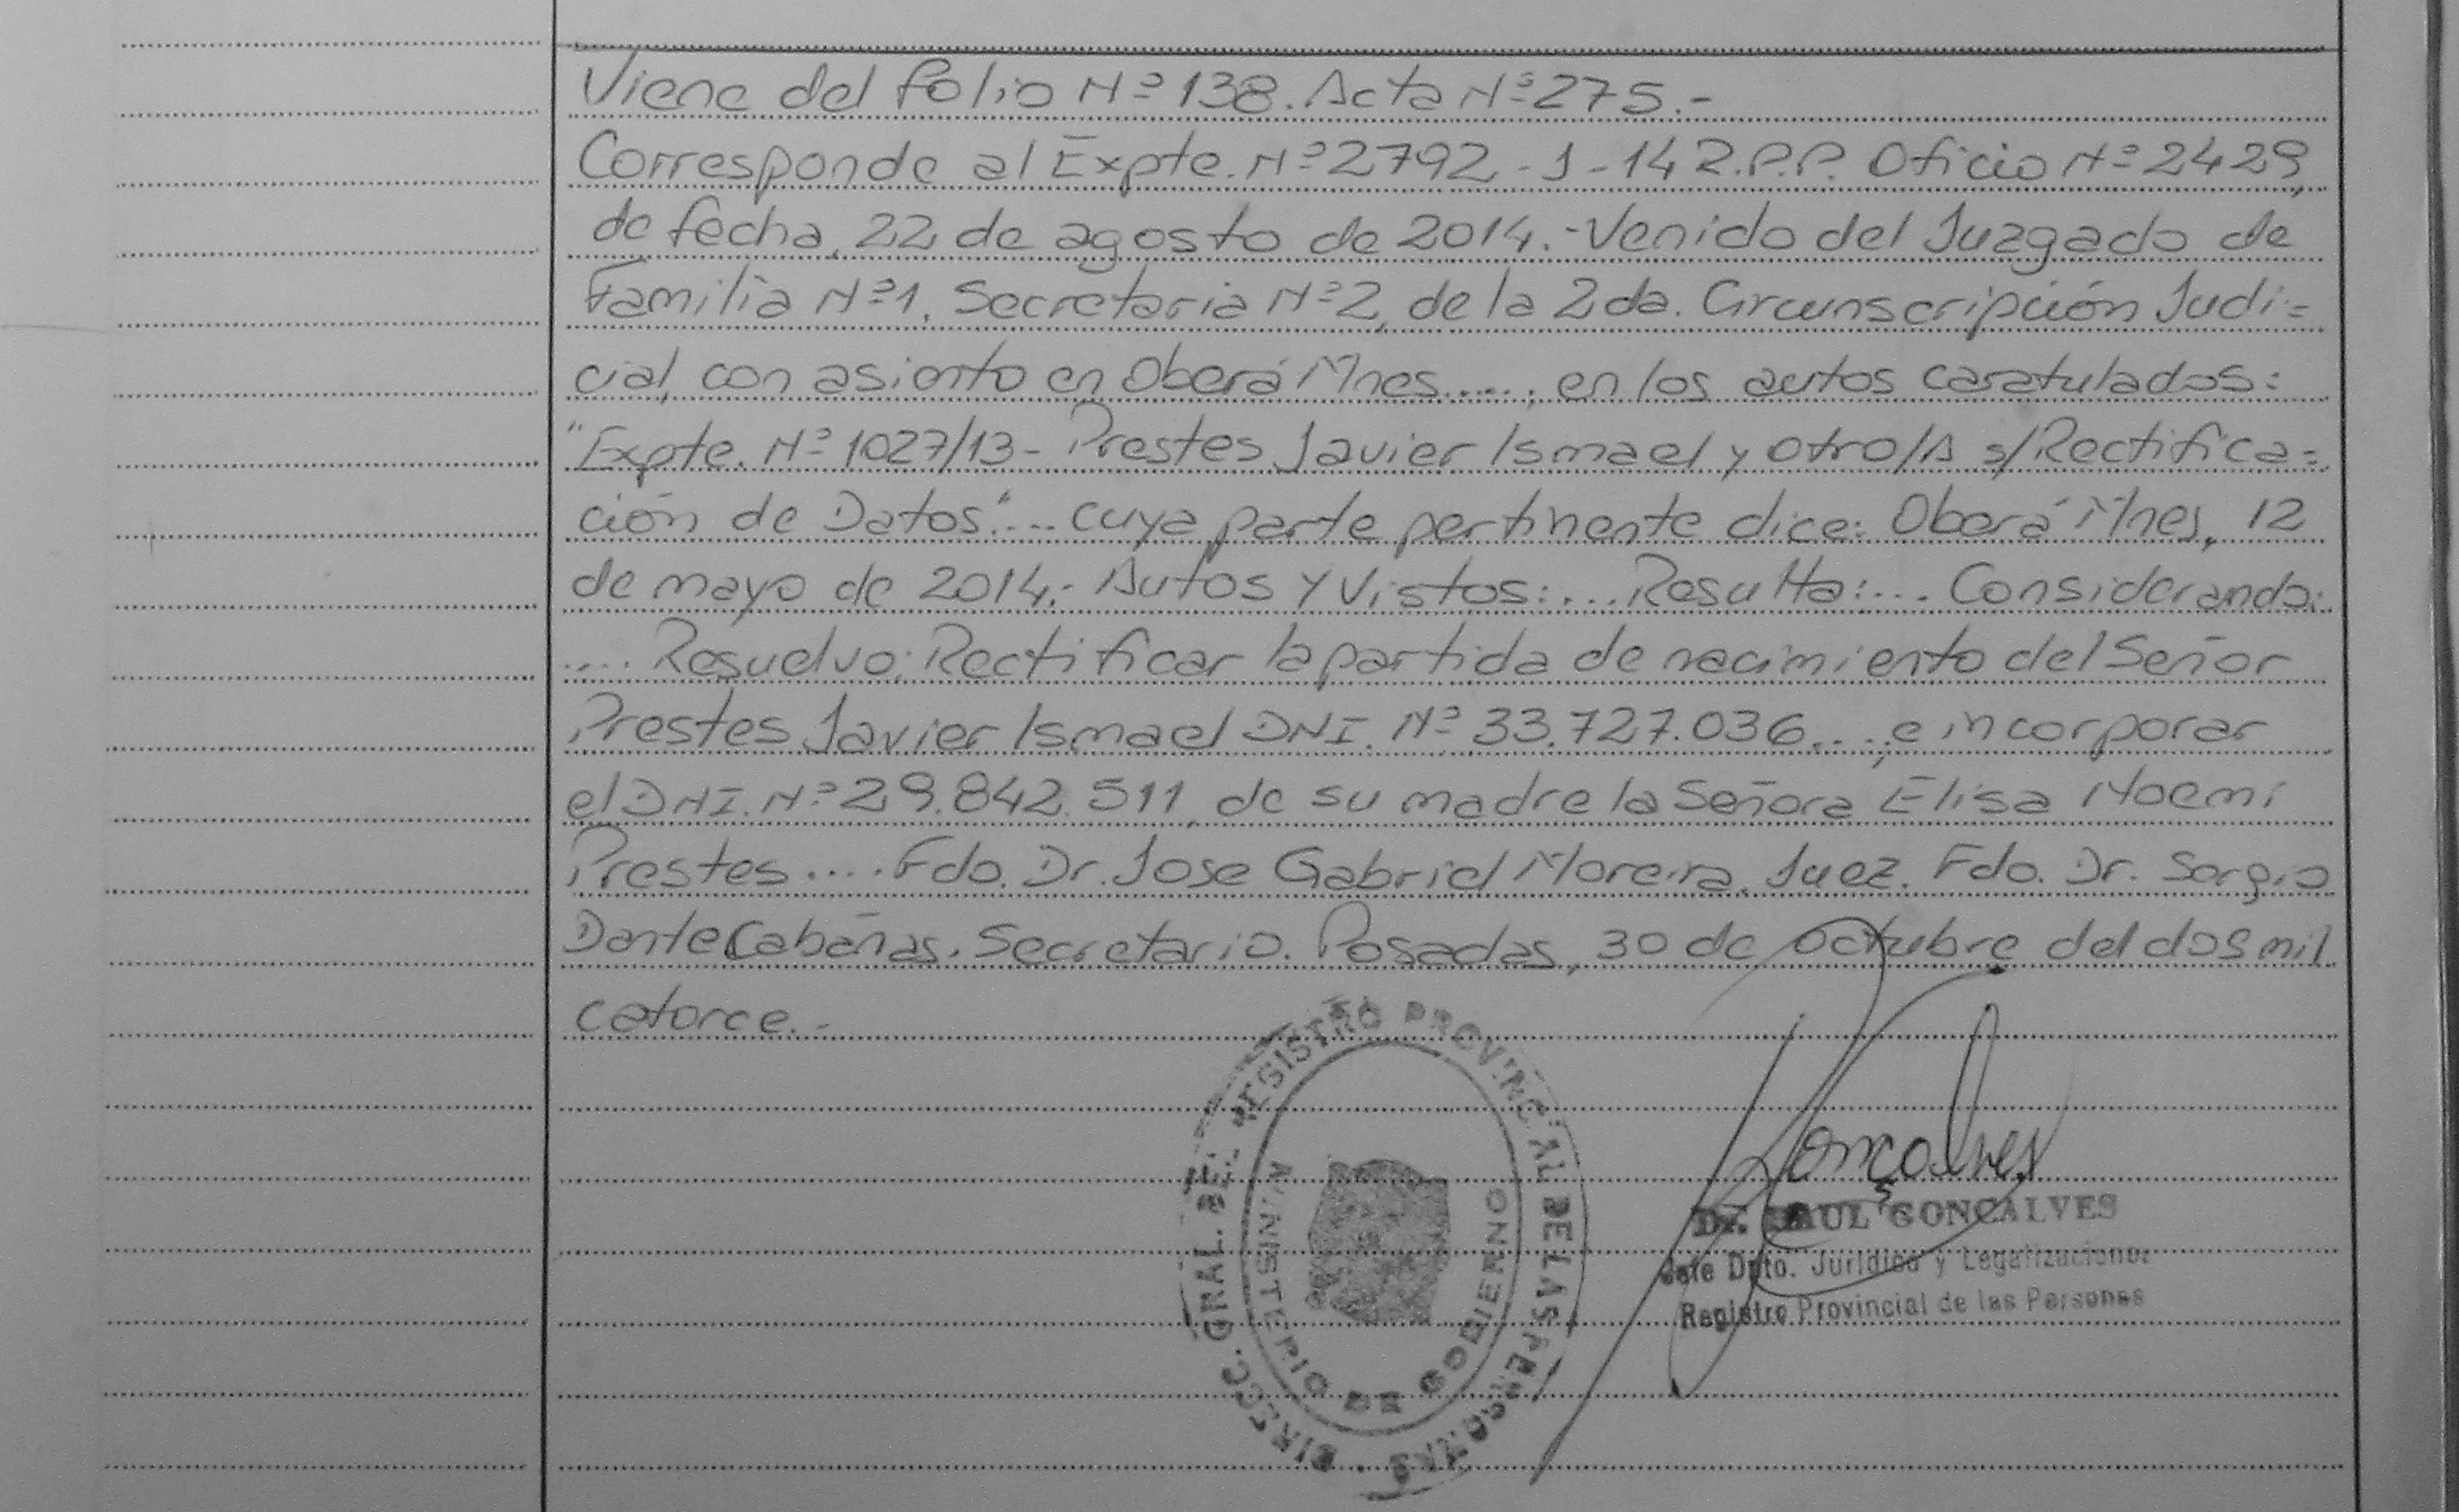 Viene del folio Nº 138. Acta Nº 275.-
Corresponde al Expte. Nº 2792-J-14 R.P.P. Oficio Nº 2429,
de fecha, 22 de agosto de 2014.- Venido del Juzgado de
Familia Nº 1, Secretaria Nº 2, de la 2da. Circunscripción Judi=
cial, con asiento en Oberá Mnes....., en los autos caratulados:
"Expte. Nº 1027/13- Prestes Javier Ismael y otro/A s/Rectifica=
ción de Datos".... cuya parte pertinente dice: Oberá Mnes, 12
de mayo de 2014.- Autos Y Vistos:.... Resulta:.... Considerando:
.... Resuelvo: Rectificar la partida de nacimiento del Señor
Prestes Javier Ismael DNI. Nº 33.727.036...., e incorporar
el DNI. Nº 29.842.511, de su madre la Señora Elisa Noemi
Prestes.... Fdo. Dr. Jose Gabriel Moreira. Juez. Fdo. Dr. Sergio
Dante Cabañas. Secretario. Posadas, 30 de octubre del dos mil
catorce.-
DIRECC. GRAL. DEL REGISTRO PROVINCIAL DE LAS PERSONAS
MINISTERIO DE GOBIERNO
Gonçalves
Dr. RAUL GONÇALVES
Jefe Dpto. Jurídico y Legalizaciones
Registro Provincial de las Personas